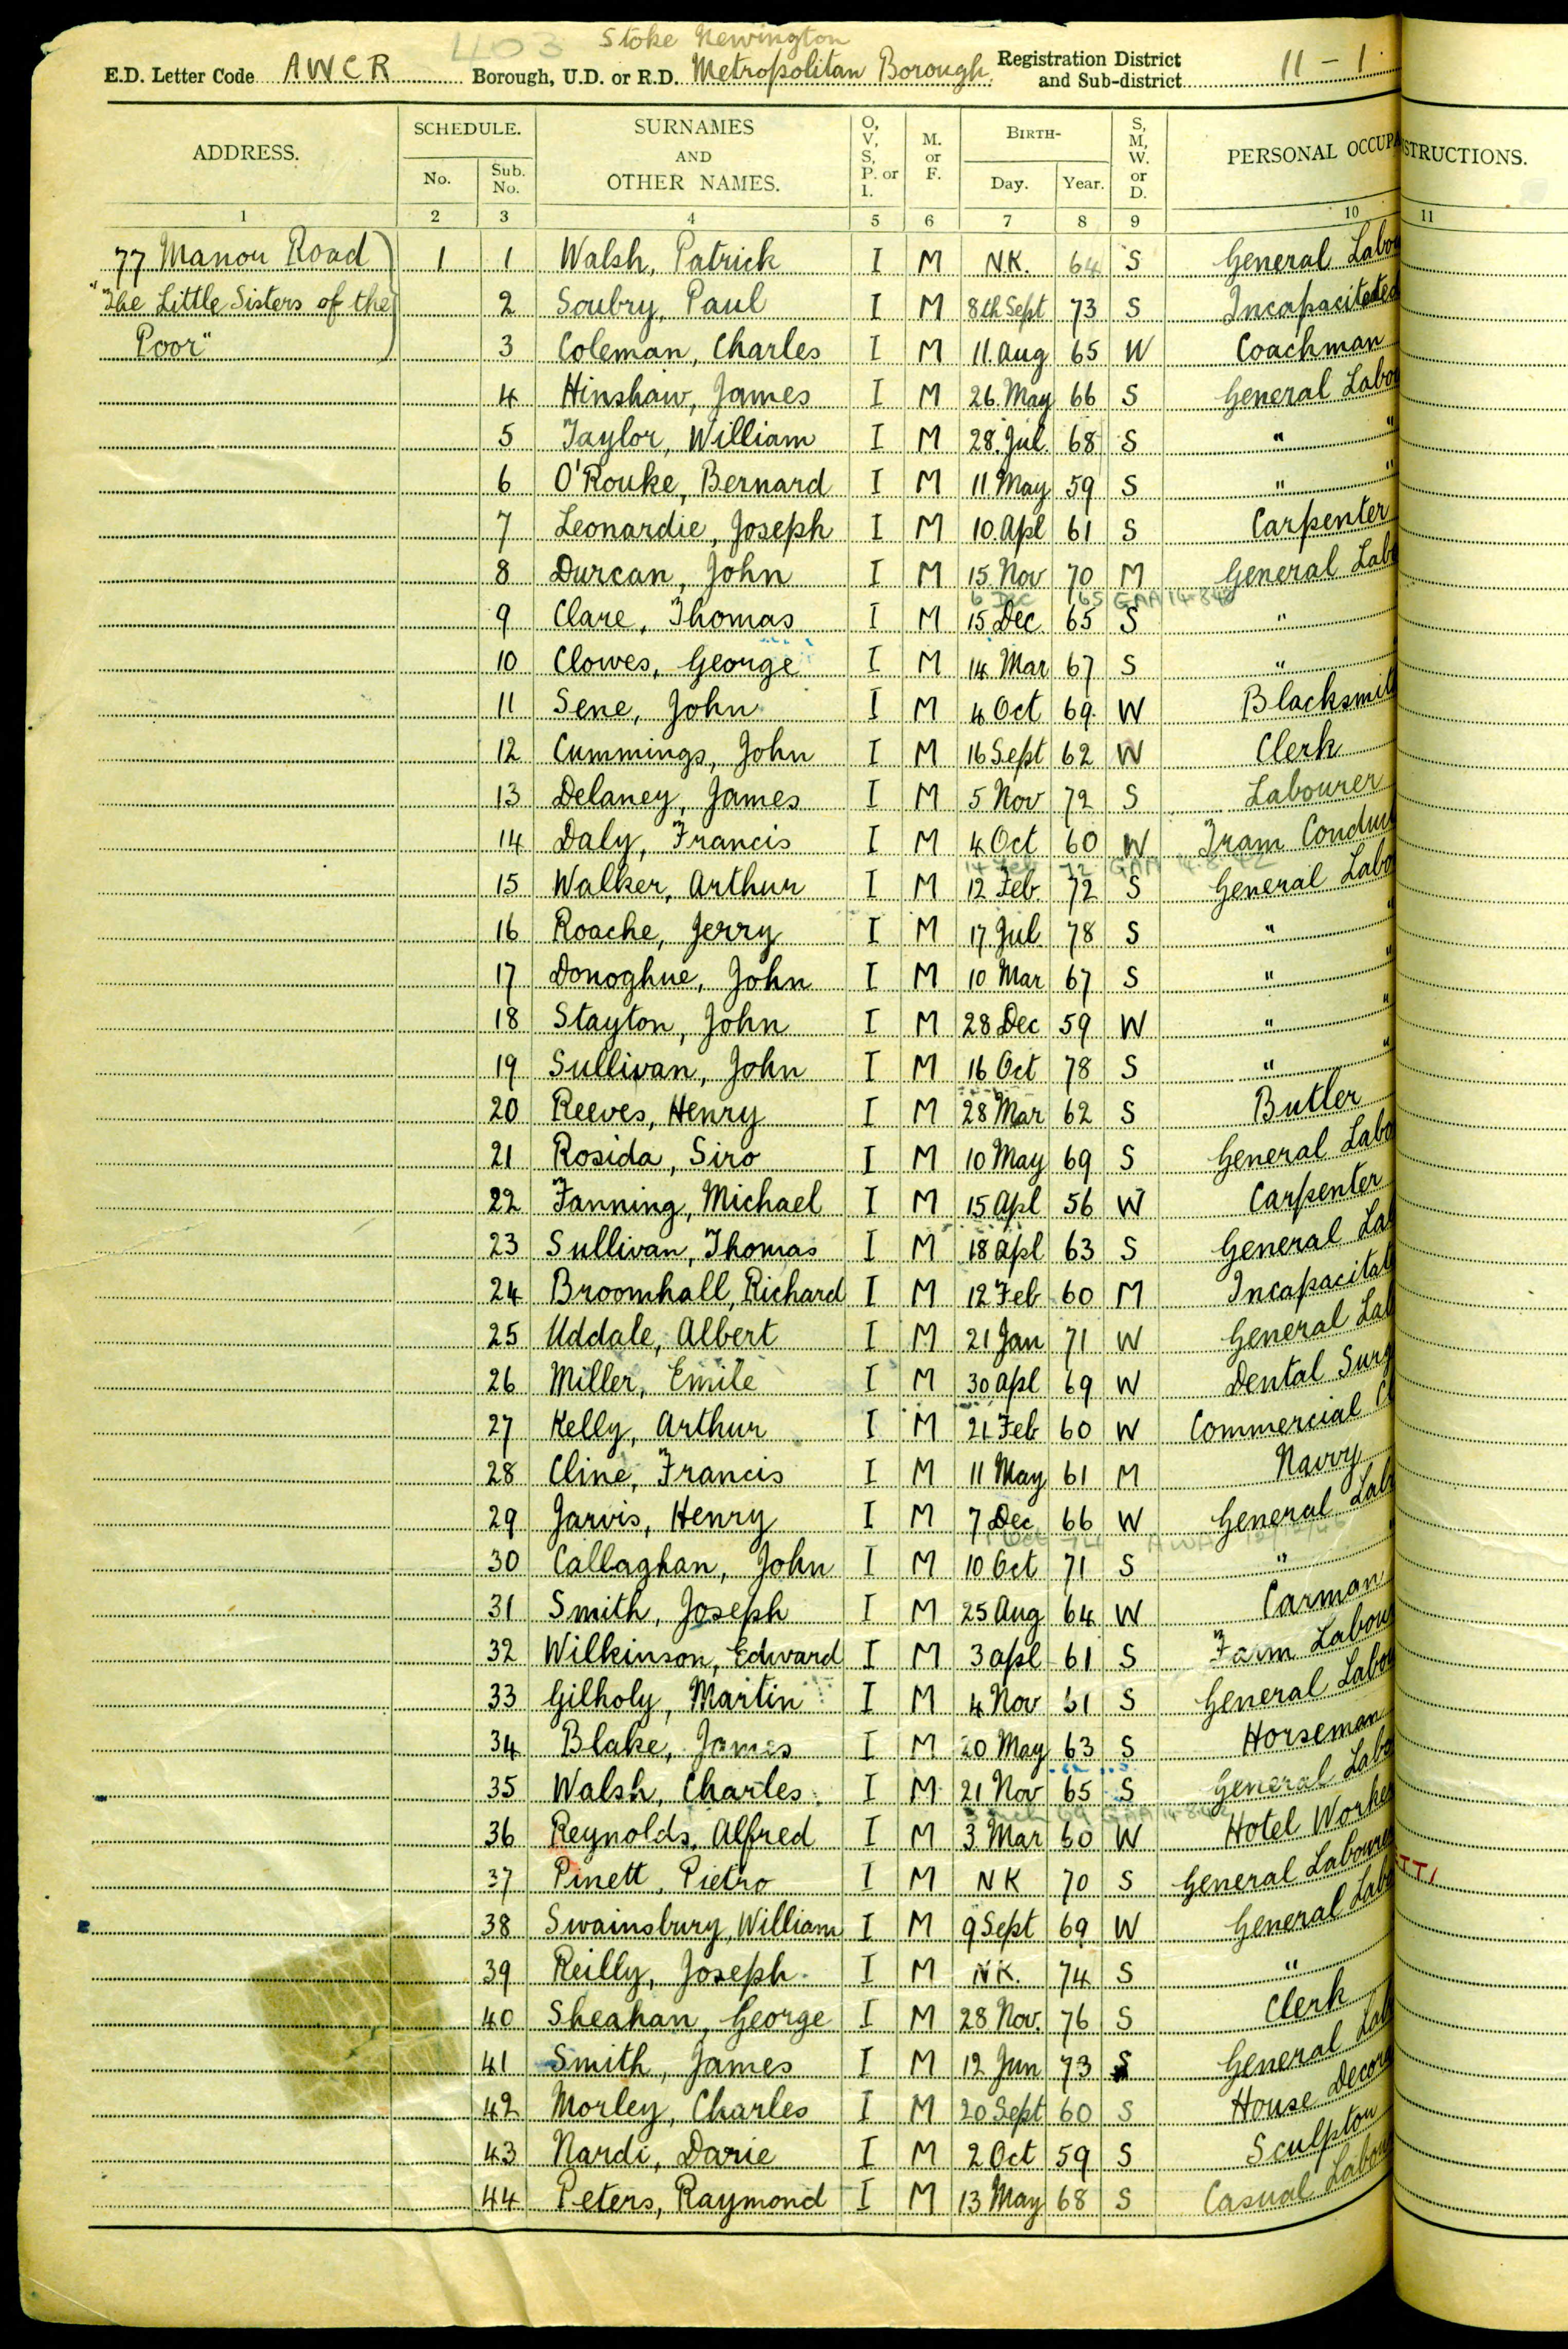 403 Stoke Newington
E.D. Letter Code AWCR Borough, U.D. or R.D. Metropolitan Borough. Registration District and Sub-district 11 - 1
ADDRESS. SCHEDULE. No. Sub. No. SURNAMES AND OTHER NAMES. O, V, S, P. or I. M. or F. BIRTH- Day. Year. S, M, W. or D. PERSONAL OCCUPA STRUCTIONS.
1 2 3 4 5 6 7 8 9 10 11
77 Manor Road 1 1 Walsh, Patrick I M N.K. 64 S General Labou
"The Little Sisters of the 2 Soubry, Paul I M 8th Sept 73 S Incapacitated
Poor" 3 Coleman, Charles I M 11. Aug 65 W Coachman
4 Hinshaw, James I M 26. May 66 S General Labou
5 Taylor, William I M 28. Jul. 68 S " "
6 O'Rouke, Bernard I M 11 May 59 S " "
7 Leonardie, Joseph I M 10. Apl 61 S Carpenter
8 Durcan, John I M 15. Nov 70 M General Labo
6 Dec 65 GAA 14-8-42
9 Clare, Thomas I M 15 Dec. 65 S "
10 Clowes, George I M 14 Mar 67 S "
11 Sene, John I M 4 Oct 69 W Blacksmit
12 Cummings, John I M 16 Sept 62 W Clerk
13 Delaney, James I M 5 Nov 72 S Labourer
14 Daly, Francis I M 4 Oct 60 W Tram Conduc
14 Feb 72 GAA 14.8.42
15 Walker, Arthur I M 12 Feb. 72 S General Labo
16 Roache, Jerry I M 17 Jul. 78 S " "
17 Donoghue, John I M 10 Mar 67 S " "
18 Stayton, John I M 28 Dec 59 W " "
19 Sullivan, John I M 16 Oct 78 S " "
20 Reeves, Henry I M 28 Mar 62 S Butler
21 Rosida, Siro I M 10 May 69 S General Labo
22 Fanning, Michael I M 15 Apl 56 W Carpenter
23 Sullivan, Thomas I M 18 Apl 63 S General Lab
24 Broomhall, Richard I M 12 Feb 60 M Incapacitate
25 Uddale, Albert I M 21 Jan 71 W General Lab
26 Miller, Emile I M 30 Apl 69 W Dental Surg
27 Kelly, Arthur I M 21 Feb 60 W Commercial Cl
28 Cline, Francis I M 11 May 61 M Navvy
29 Jarvis, Henry I M 7 Dec 66 W General Lab
30 Callaghan, John I M 10 Oct 71 S "
31 Smith, Joseph I M 25 Aug 64 W Carman
32 Wilkinson, Edward I M 3 Apl 61 S Farm Labour
33 Gilholy, Martin I M 4 Nov 61 S General Labou
34 Blake, James I M 20 May 63 S Horseman
35 Walsh, Charles I M 21 Nov 65 S General Labo
GAA 14-8-42
36 Reynolds, Alfred I M 3 Mar 60 W Hotel Worker
37 Pinett, Pietro I M NK 70 S General Labourer
38 Swainsbury, William I M 9 Sept 69 W General Labo
39 Reilly, Joseph I M NK. 74 S "
40 Sheahan, George I M 28 Nov. 76 S Clerk
41 Smith, James I M 12 Jun 73 S General Lab
42 Morley, Charles I M 20 Sept 60 S House Decora
43 Nardi, Darie I M 2 Oct 59 S Sculptor
44 Peters, Raymond I M 13 May 68 S Casual Labour